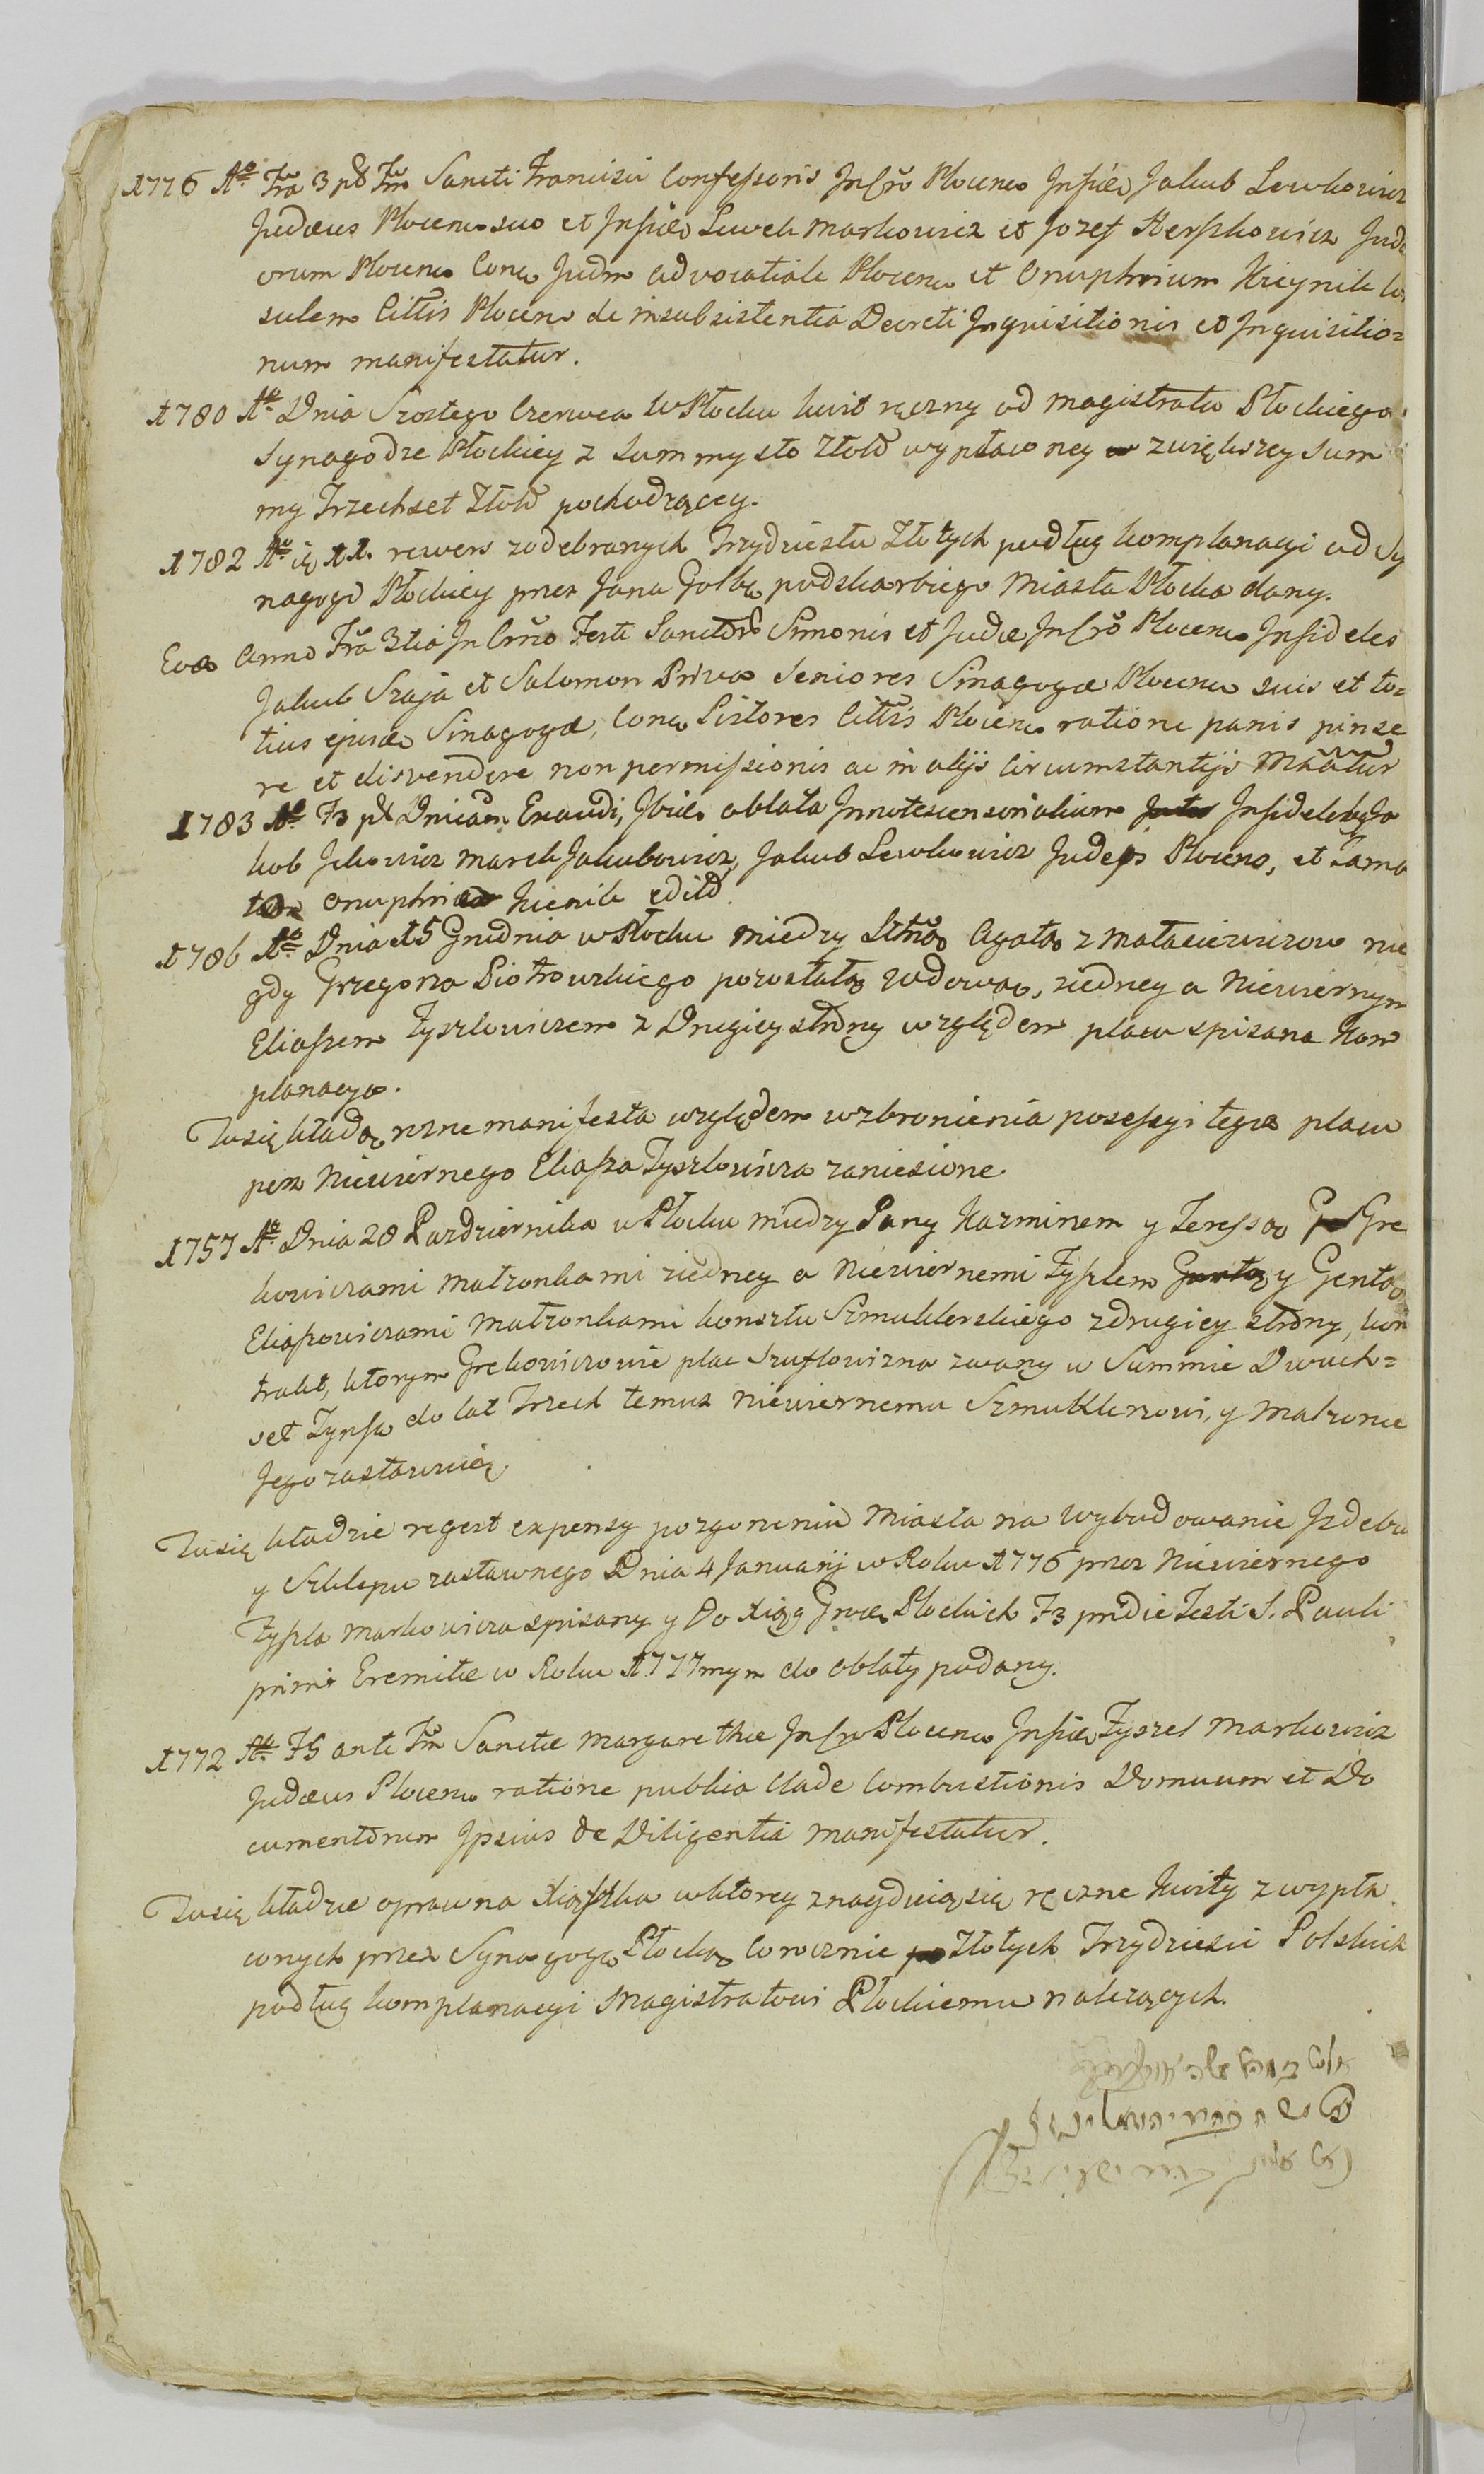 1776 Aº Fra 3 pt Ftm Sancti Francisci Confessoris In Cro Plocen Infids Jakub Lewkowicz
Judæus Plocens suo et Infids Lewek Markowicz et Jozef Herszkowicz Jude
orum Plocens Cona Judm advocatiale Plocens et Onuphrium Kicynik Con
sulem Cittis Plocens de insubsistentia Decreti Inquisitionis et Inquisitio=
num manifestatur.
1780 Aº Dnia Szostego Czerwca w Płocku kwit ręczny od Magistratu Płockiego
Synagodze Płockiey z Summy sto Złotd wypłaconey zwiększey Sum
my Trzechset Złotd pochodzącey.
1782 Aº ię 11. rewers zodebranych Trzydziestu Złotych podług komplanacyi od Sy
nagogi Płockiey przez Jana Gołbę podskarbiego Miasta Płocka dany.
Eod Anno Fra 3tia In Crno Festi Sanctor Simonis et Judæ In Cro Plocens Infideles
Jakub Szaja et Salomon Seniores Sinagogæ Plocens suis et to=
tius ejusde Sinagogæ, Cona Pistores Cittis Plocens ratione panis pinse
re et disvendere non permissionis ac in alijs Circumstantijs Mnãtur
1783 Aº F3 pt Dnicam Exaudi, Ibids oblata Innotescensorialium Infideleby Ja
kob Jckowicz Marek Jakubowicz, Jakub Lewkowicz Judeos Plocens, et Fama
Onuphri Kicnik editd
1786 Aº Dnia 15 Grudnia w Płocku między Agatą z Małaciewiczow nie
gdy Grzegorza Piotrowskiego pozostałą Wdową, ziedney a Niewiernym
Eliaszem Zyszlowiczem z Drugiey strony względem placu spisana Kom
planacya.
Tusię kładą rczne manifesta względem wzbronienia posessyi tegoż placu
przez Niewiernego Eliasza Zyszlowicza zaniesione.
1757 Aº Dnia 28 Pazdziernika w Płocku między Pany Kazmirem y Teressą Gre
kowiczami małżonkami ziedney a Niewiernemi Zyszlem y Gentą
Eliaszowiczami Małżonkami konsztu Szmuklerskiego zdrugiey strony, kon
trakt, którym Grekowiczowie plac Szuflowizna zwany w Summie Dwuch=
set Tynfw do lat Trzech temuż Niewiernemu Szmuklerzowi, y Małżonce
Jego zastawuią.
Tusię kładzie regest expensy pozgorzeniu Miasta na Wybudowanie Izdebu
y Szklepu zastawnego Dnia 4 Januarij w Roku 1776 przez Niewiernego
Zyszla Markowicza spisany y Do Xiąg Grodz Płockich F3 pridie Festi S. Pauli
primi Eremitæ w Roku 1777mym do oblaty podany.
1772 Aº F5 ante Ftm Sanctæ Margarethæ In Cro Plocens Infids Zyszel Markowicz
Judæus Plocens ratione publica Clade Combustionis Domuum et Do
cumentorum Ipsius de Diligentia manifestatur.
Tusię kładzie oprawna Xiąszka wktorey znayduią się ręczne kwity z wypła
conych przez Synagogę Płocką Corocznie Złotych Trzydzieści Polskich
podług komplanacyi Magistratowi Płockiemu należących.